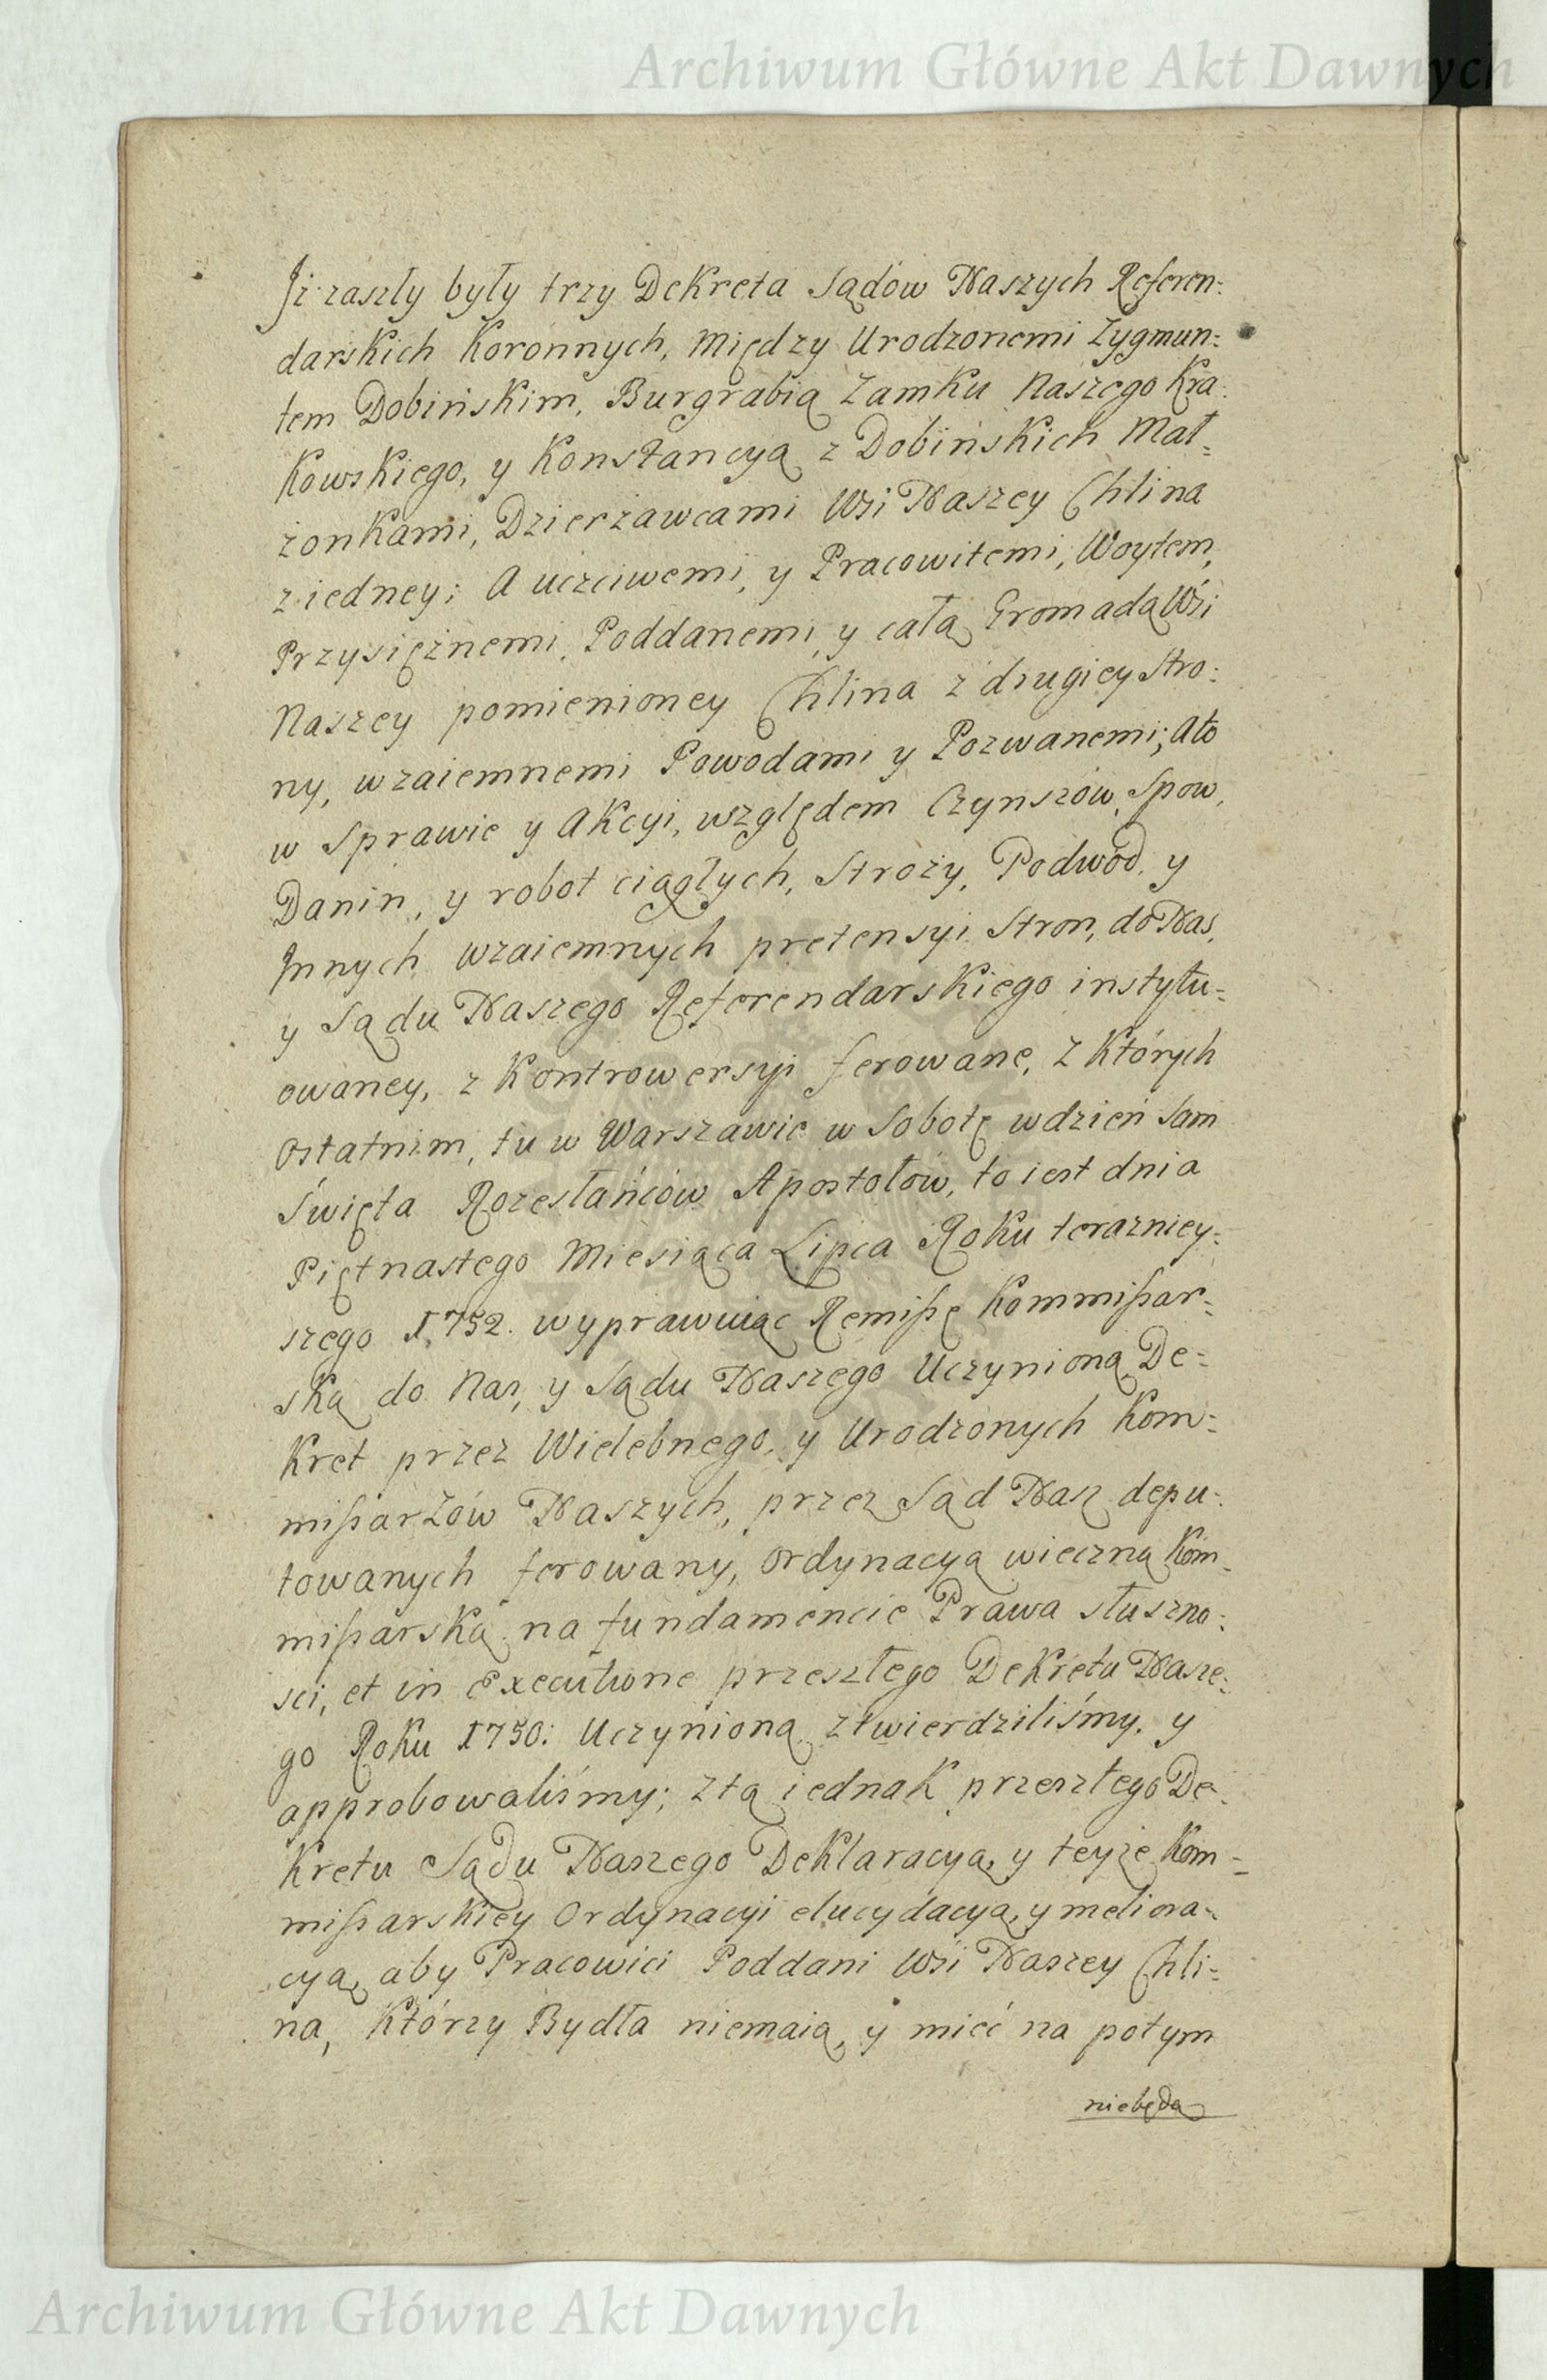 Archiwum Główne Akt Dawnych
Iż zaszły były trzy Dekreta Sądów Naszych Referen:
darskich Koronnych, Między Urodzonemi Zygmun:
tem Dobińskim, Burgrabią Zamku Naszego Kra:
kowskiego, y Konstancyą z Dobińskich Mał=
żonkami, Dzierżawcami Wsi Naszey Chlina
z iedney; A uczciwemi, y Pracowitemi, Woytem,
Przysiężnemi, Poddanemi, y całą Gromadą Wsi
Naszey pomienioney Chlina z drugiey Stro:
ny, wzaiemnemi Powodami y Pozwanemi; Ato
w Sprawie y Akcyi, względem Czynszów, Spow,
Danin, y robot ciągłych, Stroży, Podwód, y
Innych wzaiemnych pretensyi Stron, do Nas,
y Sądu Naszego Referendarskiego instytu=
owaney, z Kontrowersyi ferowane, z Których
Ostatnim, tu w Warszawie w Sobotę wdzień Sam
Święta Rozesłańców Apostołów, to iest dnia
Piętnastego Miesiąca Lipca Roku terazniey:
szego 1752. wyprawuiąc Remißę Kommißar=
ską do Nas, y Sądu Naszego Uczynioną, De=
kret przez Wielebnego, y Urodzonych Kom=
mißarzów Naszych, przez Sąd Nasz depu=
towanych ferowany, Ordynacyą wieczną Kom=
mißarską na fundamencie Prawa słuszno:
sci, et in Executione przeszłego Dekretu Nasze:
go Roku 1750: Uczynioną ztwierdziliśmy, y
approbowaliśmy; Ztą iednak przeszłego De=
kretu Sądu Naszego Deklaracyą, y teyże Kom=
mißarskiey Ordynacyi elucydacyą, y meliora=
cyą, aby Pracowici Poddani Wsi Naszey Chli=
na, Którzy Bydła niemaią, y mieć na potym
niebędą
Archiwum Główne Akt Dawnych